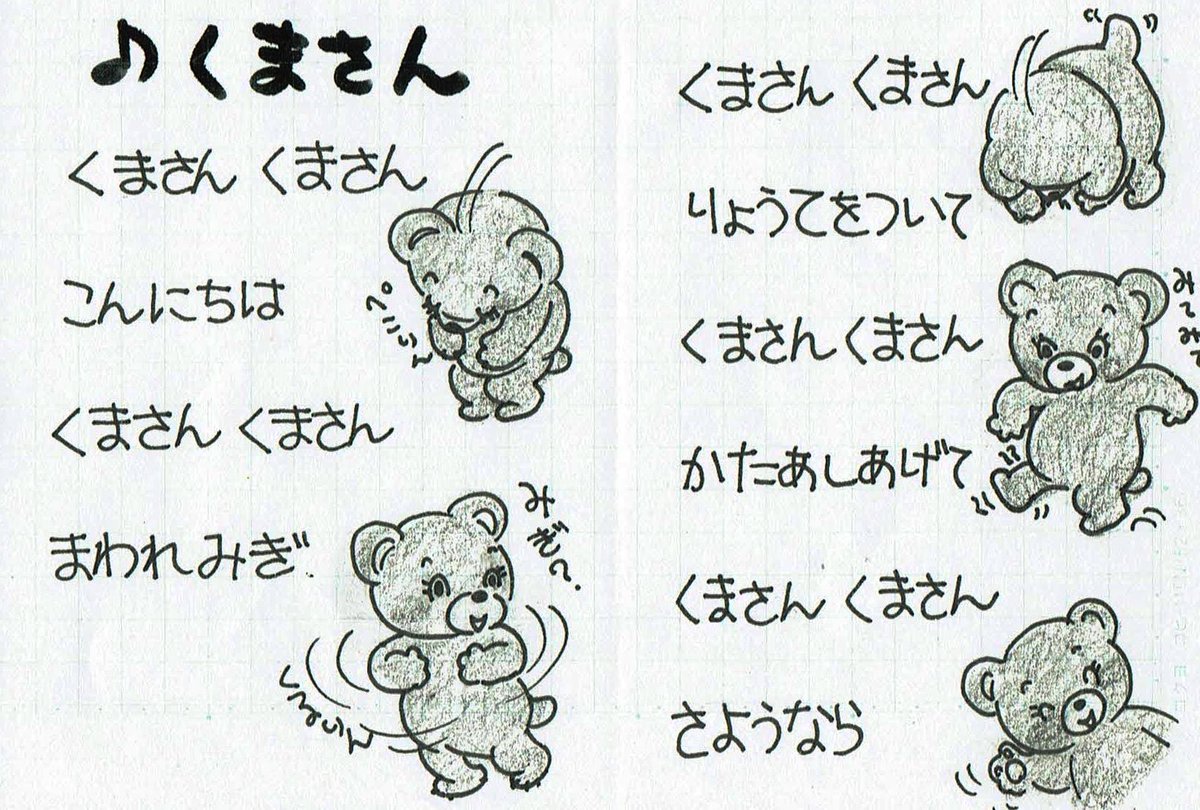 ♪くまさん
くまさん くまさん
こんにちは
ぺこりん
くまさん くまさん
まわれみぎ
みぎ〜
くまさん くまさん
りょうてをついて
くまさん くまさん
みてみて
かたあしあげて
くまさん くまさん
さようなら